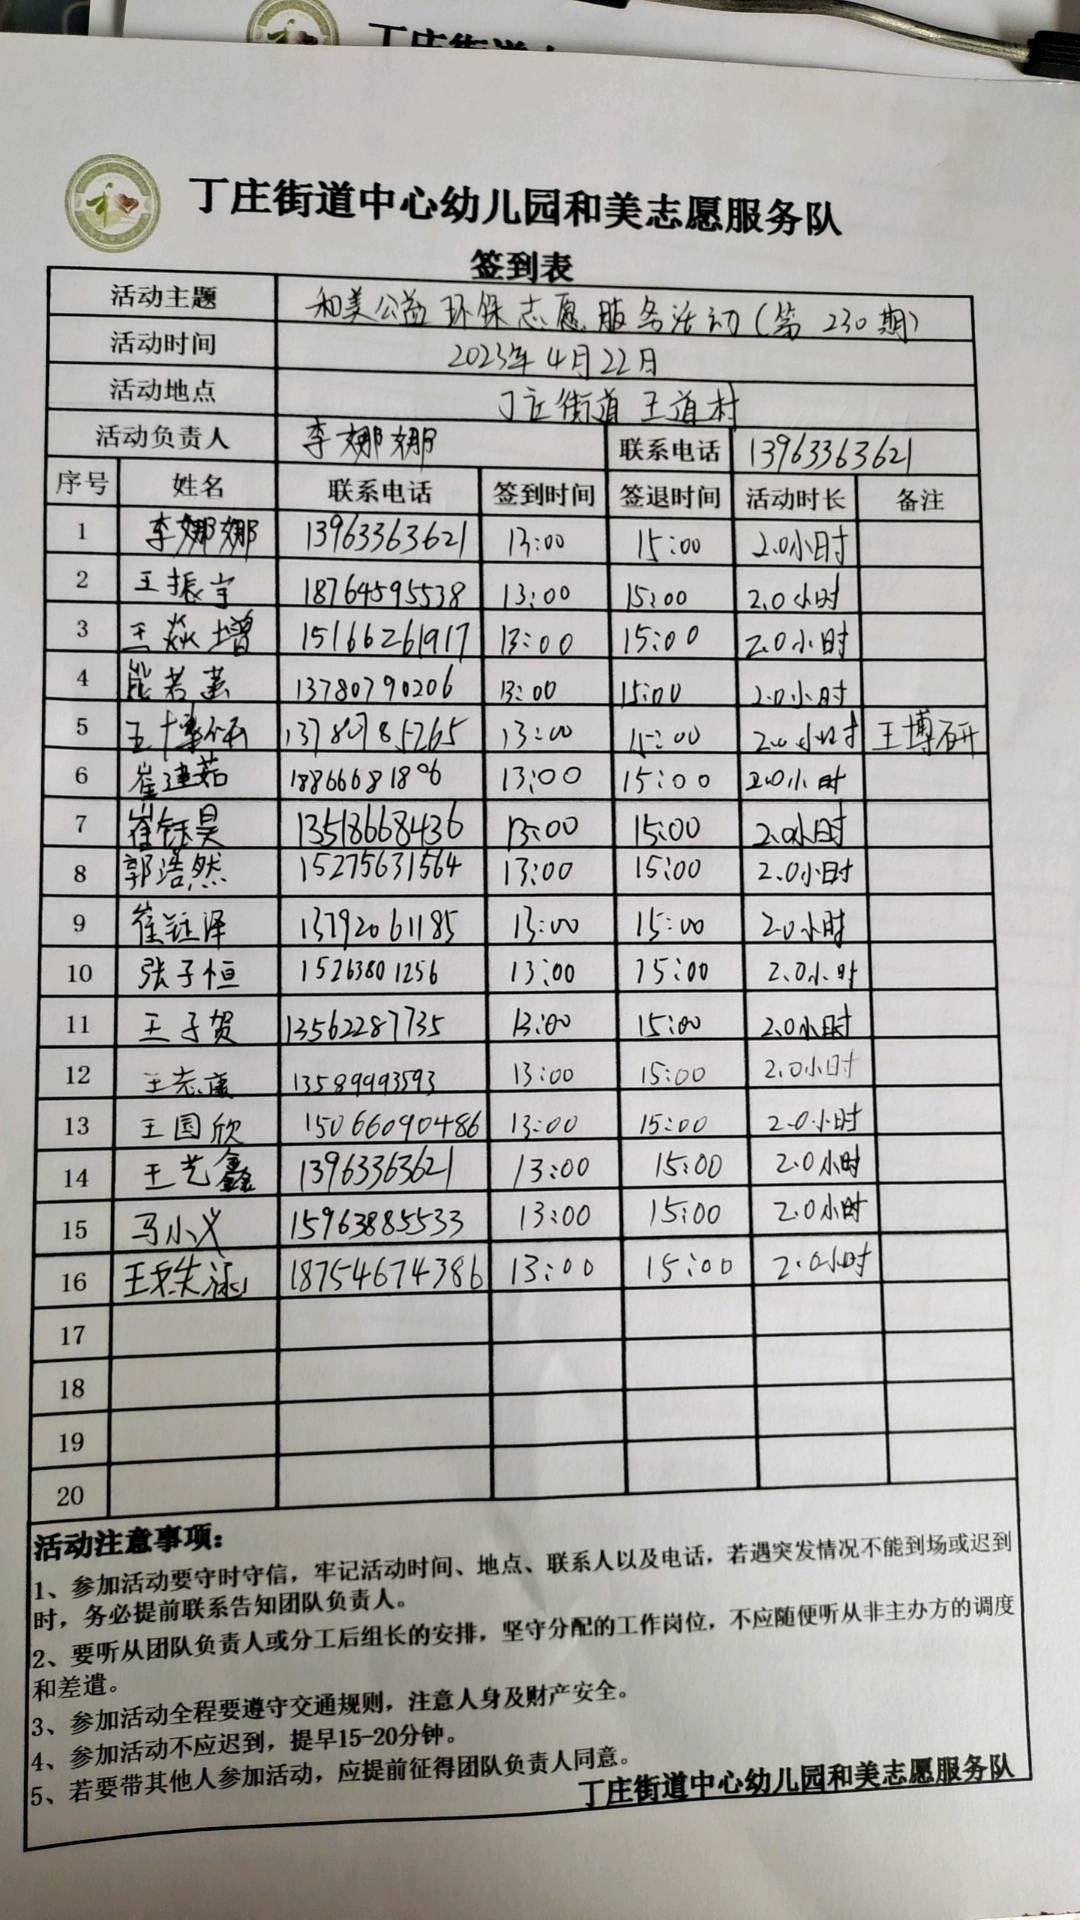 丁庄街道中心幼儿园和美志愿服务队
签到表
活动主题 和美公益环保志愿服务活动(第 230期)
活动时间 2023年4月22日
活动地点 丁庄街道 王道村
活动负责人 李娜娜 联系电话 13963363621
序号 姓名 联系电话 签到时间 签退时间 活动时长 备注
1 李娜娜 13963363621 13:00 15:00 2.0小时
2 王振宇 18764595538 13:00 15:00 2.0小时
3 王焱增 15166261917 13:00 15:00 2.0小时
4 熊若 13780790206 13:00 15:00 2.0小时
5 王博研 13780785265 13:00 15:00 2.0小时 王博研
6 崔建茹 18866681896 13:00 15:00 2.0小时
7 崔钰昊 13518668436 13:00 15:00 2.0小时
8 郭浩然 15275631564 13:00 15:00 2.0小时
9 崔钰泽 13792061185 13:00 15:00 2.0小时
10 张子恒 15263801256 13:00 15:00 2.0小时
11 王子贺 13562287735 13:00 15:00 2.0小时
12 王志康 13589993593 13:00 15:00 2.0小时
13 王国欣 15066090486 13:00 15:00 2.0小时
14 王艺鑫 13963363621 13:00 15:00 2.0小时
15 马小义 15963885533 13:00 15:00 2.0小时
16 王 涵 18754674386 13:00 15:00 2.0小时
17
18
19
20
活动注意事项:
1、参加活动要守时守信，牢记活动时间、地点、联系人以及电话，若遇突发情况不能到场或迟到
时，务必提前联系告知团队负责人。
2、要听从团队负责人或分工后组长的安排，坚守分配的工作岗位，不应随便听从非主办方的调度
和差遣。
3、参加活动全程要遵守交通规则，注意人身及财产安全。
4、参加活动不应迟到，提早15-20分钟。
5、若要带其他人参加活动，应提前征得团队负责人同意。
丁庄街道中心幼儿园和美志愿服务队